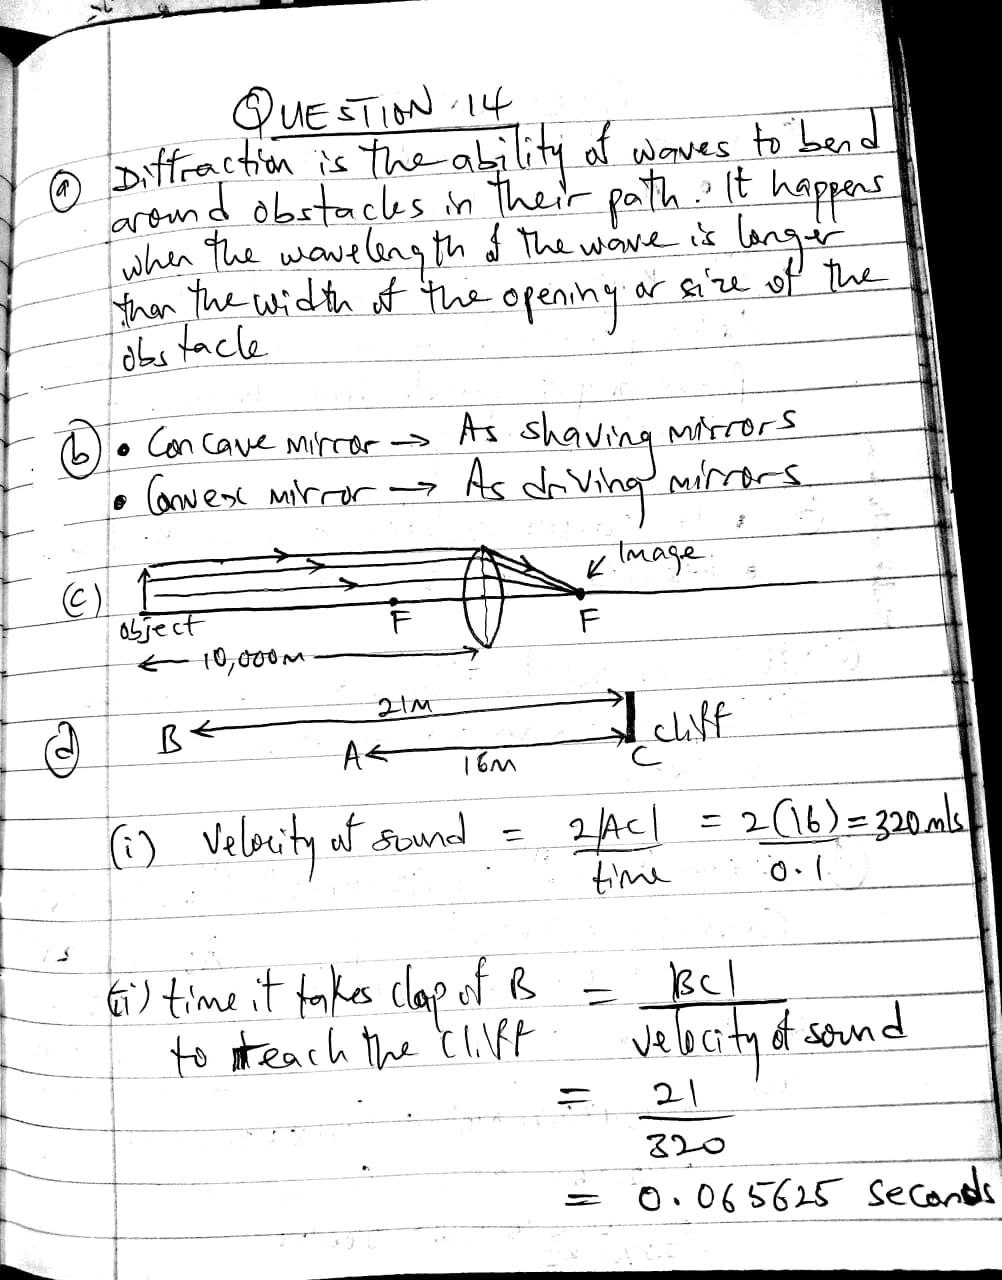 QUESTION 14
(a) Diffraction is the ability of waves to bend
around obstacles in their path. It happens
when the wavelength of the wave is longer
than the width of the opening or size of the
obstacle
(b) • Concave mirror → As shaving mirrors
• Convex mirror → As driving mirrors
(c) Image
object F F
← 10,000m →
(d) 21m
B cliff
A 16m C
(i) Velocity of sound = 2|AC| / time = 2(16) / 0.1 = 320 m/s
(ii) time it takes clap of B = |BC|
to reach the cliff velocity of sound
= 21
320
= 0.065625 seconds